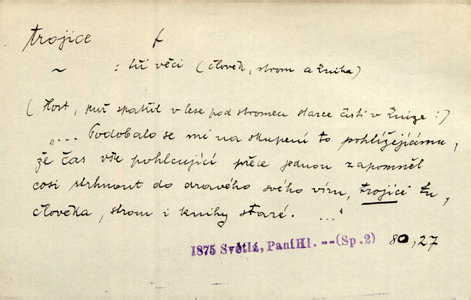 trojice f
~ : tři věci (člověk, strom a kniha)
(Host, když spatřil v lese pod stromem starce čísti v knize:)
"... Podobalo se mi na skupení to pohlížejícímu,
že čas vše pohlcující přece jednou zapomněl
cosi strhnout do dravého svého víru, trojici tu,
člověka, strom i knihy staré. ..."
1875 Světlá, Paní Hl. --(Sp.2) 80,27